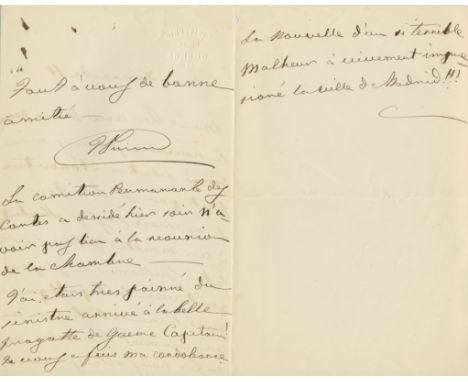 Tout à vous de bonne
amitié
Prim
La comition Permanante des
Cortes a desidé hier soir n'a
voir pas lieu à la reounion
de la Chambre
J'ai etais tres painné du
sinistre arrivé à la belle
fragatte de Gueme Capitain
Je vous a fais ma condoleance
La nouvelle d'un si terrible
malheur à vivement impre
sioné la ville d Madrid!!!